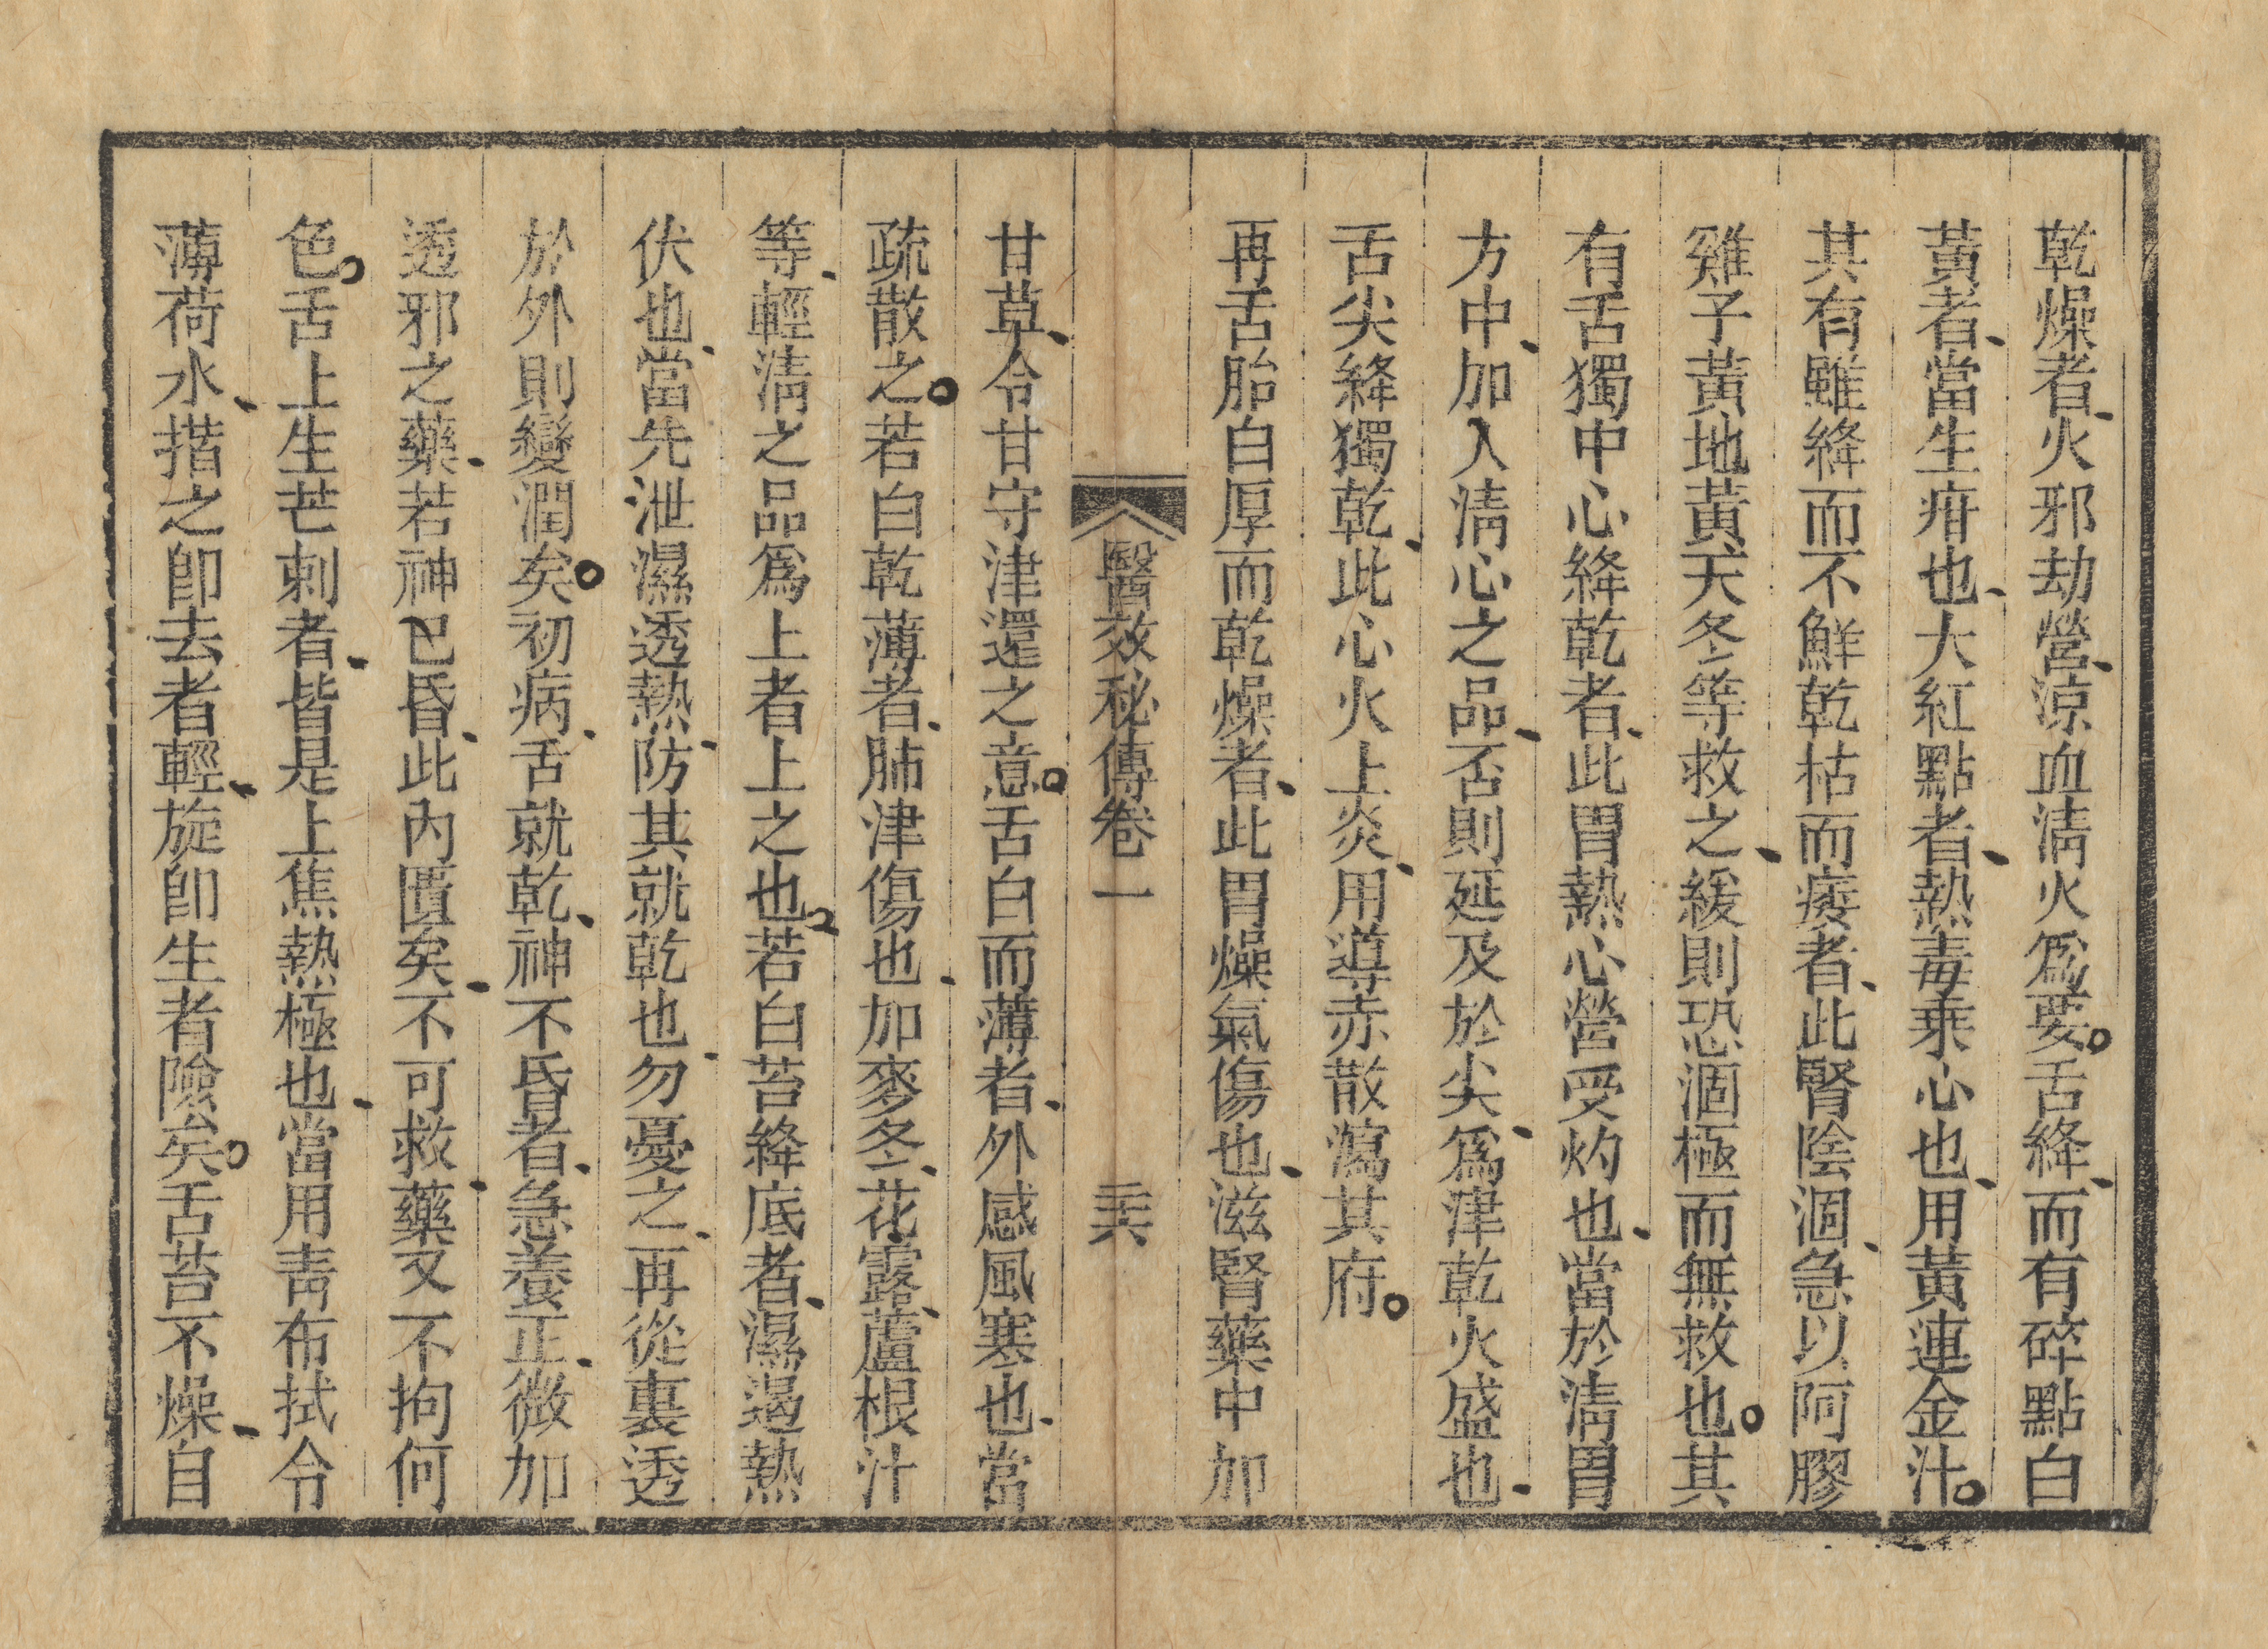 乾燥者、火邪劫營、涼血淸火爲要。舌絳、而有碎點白
黃者、當生疳也、大紅點者、熱毒乘心也、用黃連金汁。
其有雖絳而不鮮乾枯而痿者、此腎陰涸、急以阿膠
雞子黃地黃天冬等救之、緩則恐涸極而無救也。其
有舌獨中心絳乾者、此胃熱心營受灼也、當於淸胃
方中、加入淸心之品、否則延及於尖、爲津乾火盛也、
舌尖絳獨乾、此心火上炎、用導赤散瀉其府。
再舌胎白厚而乾燥者、此胃燥氣傷也、滋腎藥中加
醫效秘傳卷一 二十六
甘草、令甘守津還之意。舌白而薄者、外感風寒也、當
疏散之。若白乾薄者、肺津傷也、加麥冬、花露、蘆根汁
等、輕淸之品爲上者上之也。若白苔絳底者、濕遏熱
伏也、當先泄濕透熱、防其就乾也、勿憂之、再從裏透
於外則變潤矣。初病、舌就乾、神不昏者、急養正、微加
透邪之藥、若神已昏、此內匱矣、不可救、藥又不拘何
色。舌上生芒刺者、皆是上焦熱極也、當用靑布拭令
薄荷水、揩之卽去者輕、旋卽生者險矣。舌苔不燥、自